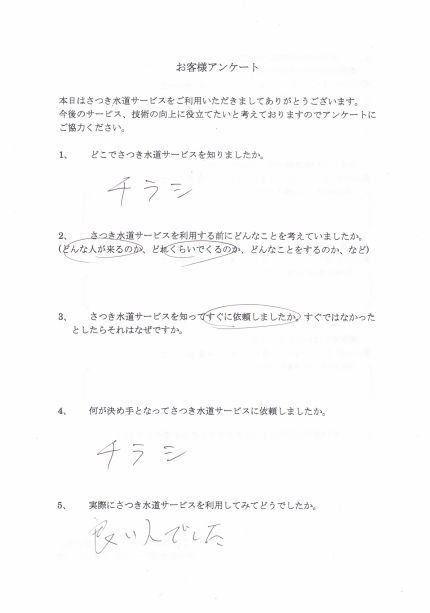 お客様アンケート
本日はさつき水道サービスをご利用いただきましてありがとうございます。
今後のサービス、技術の向上に役立てたいと考えておりますのでアンケートに
ご協力ください。
1、 どこでさつき水道サービスを知りましたか。
チラシ
2、 さつき水道サービスを利用する前にどんなことを考えていましたか。
(どんな人が来るのか、どれくらいでくるのか、どんなことをするのか、など)
3、 さつき水道サービスを知ってすぐに依頼しましたか。すぐではなかった
としたらそれはなぜですか。
4、 何が決め手となってさつき水道サービスに依頼しましたか。
チラシ
5、 実際にさつき水道サービスを利用してみてどうでしたか。
良い人でした